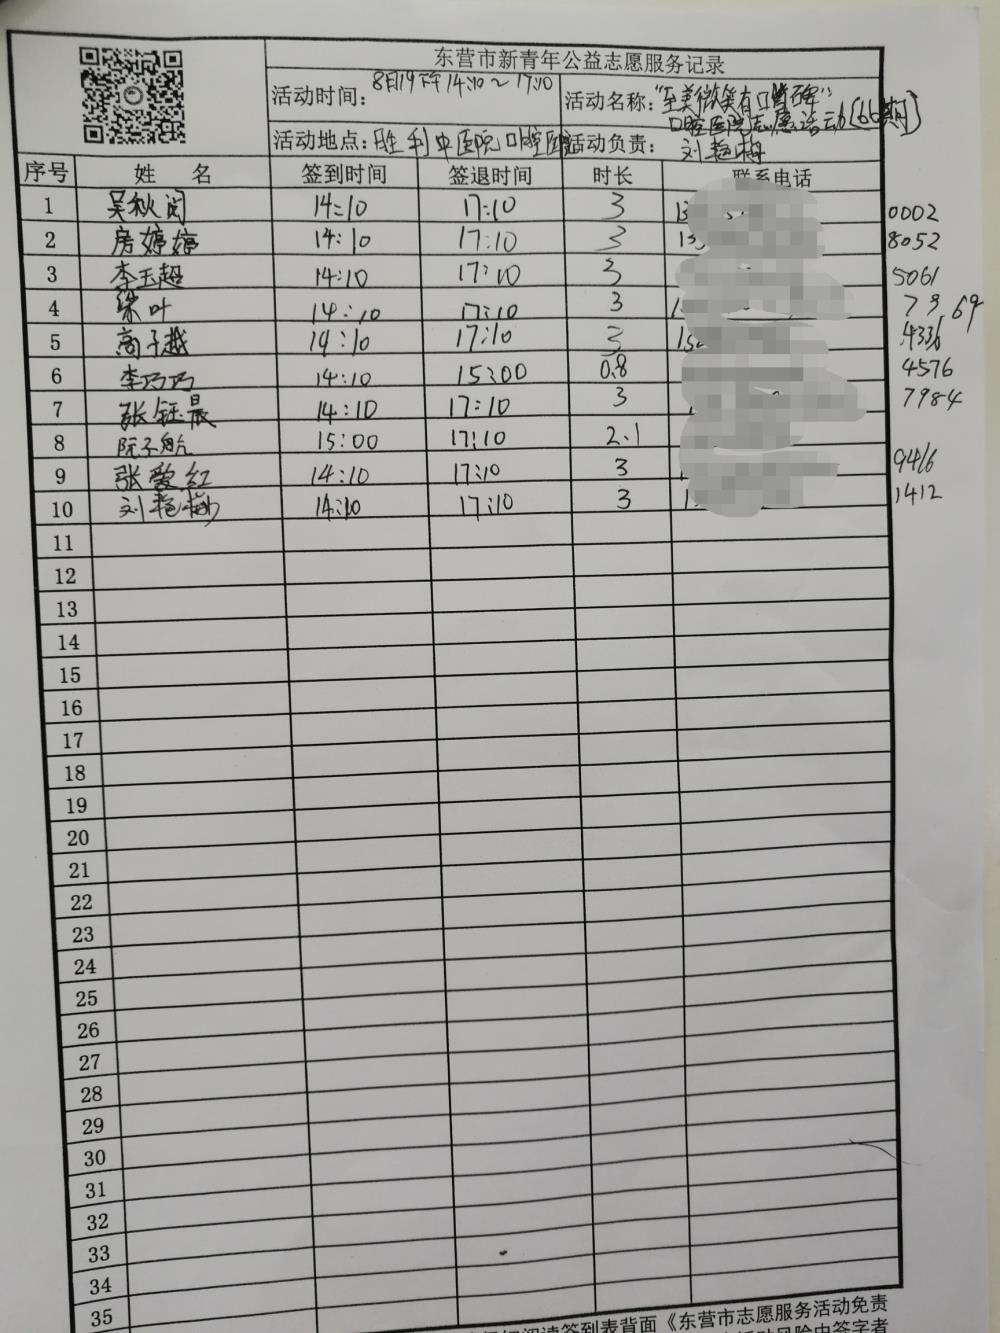 东营市新青年公益志愿服务记录
活动时间：8月19下午14:10～17:10 活动名称：“至美微笑有口皆碑”
口腔医院志愿活动(66期)
活动地点：胜利中医院口腔医院 活动负责：刘艳梅
序号 姓 名 签到时间 签退时间 时长 联系电话
1 吴秋闵 14:10 17:10 3 13 0002
2 房婷婷 14:10 17:10 3 13 8052
3 李玉超 14:10 17:10 3 5061
4 梁叶 14:10 17:10 3 1 7969
5 高子越 14:10 17:10 3 15 4336
6 李巧巧 14:10 15:00 0.8 4576
7 张钰晨 14:10 17:10 3 7984
8 阮子航 15:00 17:10 2.1
9 张爱红 14:10 17:10 3 1 9416
10 刘艳梅 14:10 17:10 3 1 1412
11
12
13
14
15
16
17
18
19
20
21
22
23
24
25
26
27
28
29
30
31
32
33
34
35
阅读签到表背面《东营市志愿服务活动免责
活动风险由签字者